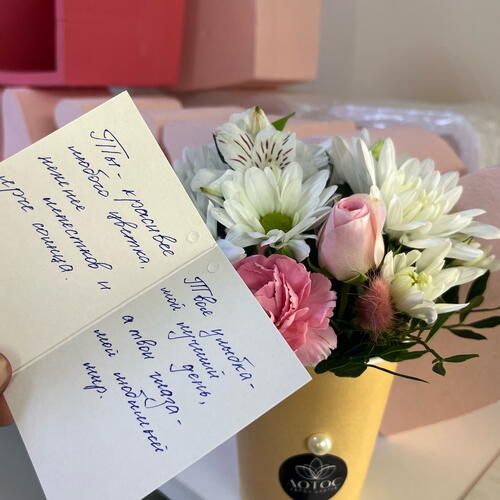 Ты - красивее
любого цветка,
нежнее лепестков и
ярче солнца.
Твоя улыбка -
мой лучший день,
а твои глаза -
мой любимый
мир.
ЛОТОС